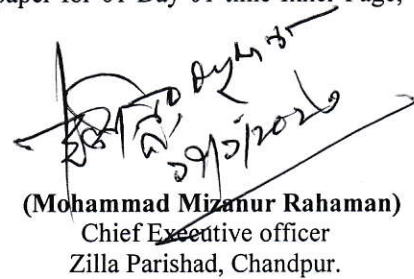 paper for 01 Day 01 time Inner Page,
(Mohammad Mizanur Rahaman)
Chief Executive officer
Zilla Parishad, Chandpur.